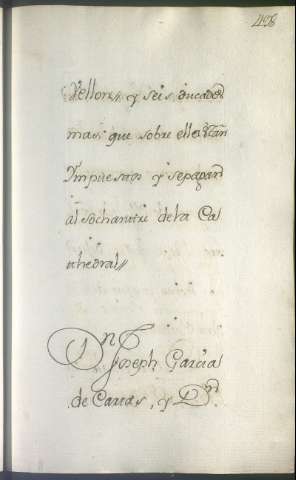 498
Vellon, y seis ducados
mas que sobre ellas
Ympuestos y sepagan
al sochantre de la Ca
thedral
Dn
Joseph Garcia
de Carcas, y Dn